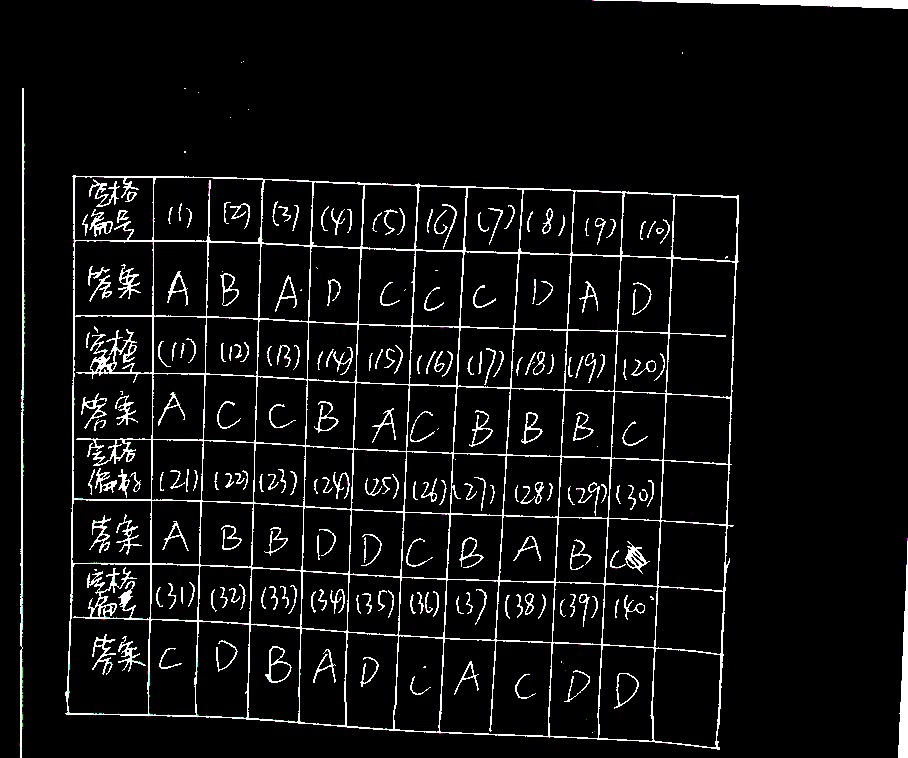 空格编号 (1) (2) (3) (4) (5) (6) (7) (8) (9) (10)
答案 A B A D C C C D A D
空格编号 (11) (12) (13) (14) (15) (16) (17) (18) (19) (20)
答案 A C C B A C B B B C
空格编号 (21) (22) (23) (24) (25) (26) (27) (28) (29) (30)
答案 A B B D D C B A B C
空格编号 (31) (32) (33) (34) (35) (36) (37) (38) (39) (40
答案 C D B A D C A C D D